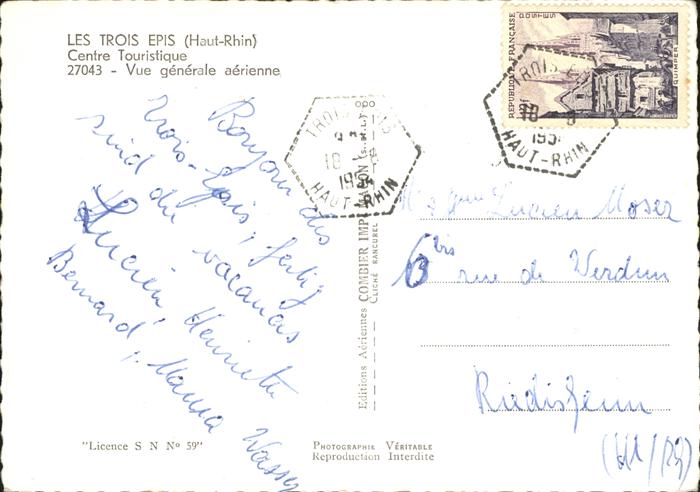 LES TROIS EPIS (Haut-Rhin)
Centre Touristique
27043 - Vue générale aérienne
Bonjour des
Trois-Epis, fertig
sind die vacances
Lucien Henriette
Bernard, Mama Wasser
Editions Aériennes COMBIER IMP. MACON (S.-et-L.)
CLICHÉ RANCUREL
TROIS-EPIS
18
195
HAUT-RHIN
REPUBLIQUE FRANÇAISE
POSTES
QUIMPER
TROIS-EPIS
18
195
HAUT-RHIN
Lucien Moser
6 bis rue de Verdun
Riedisheim
(Ht/Rh)
"Licence S N N° 59"
PHOTOGRAPHIE VÉRITABLE
Reproduction Interdite